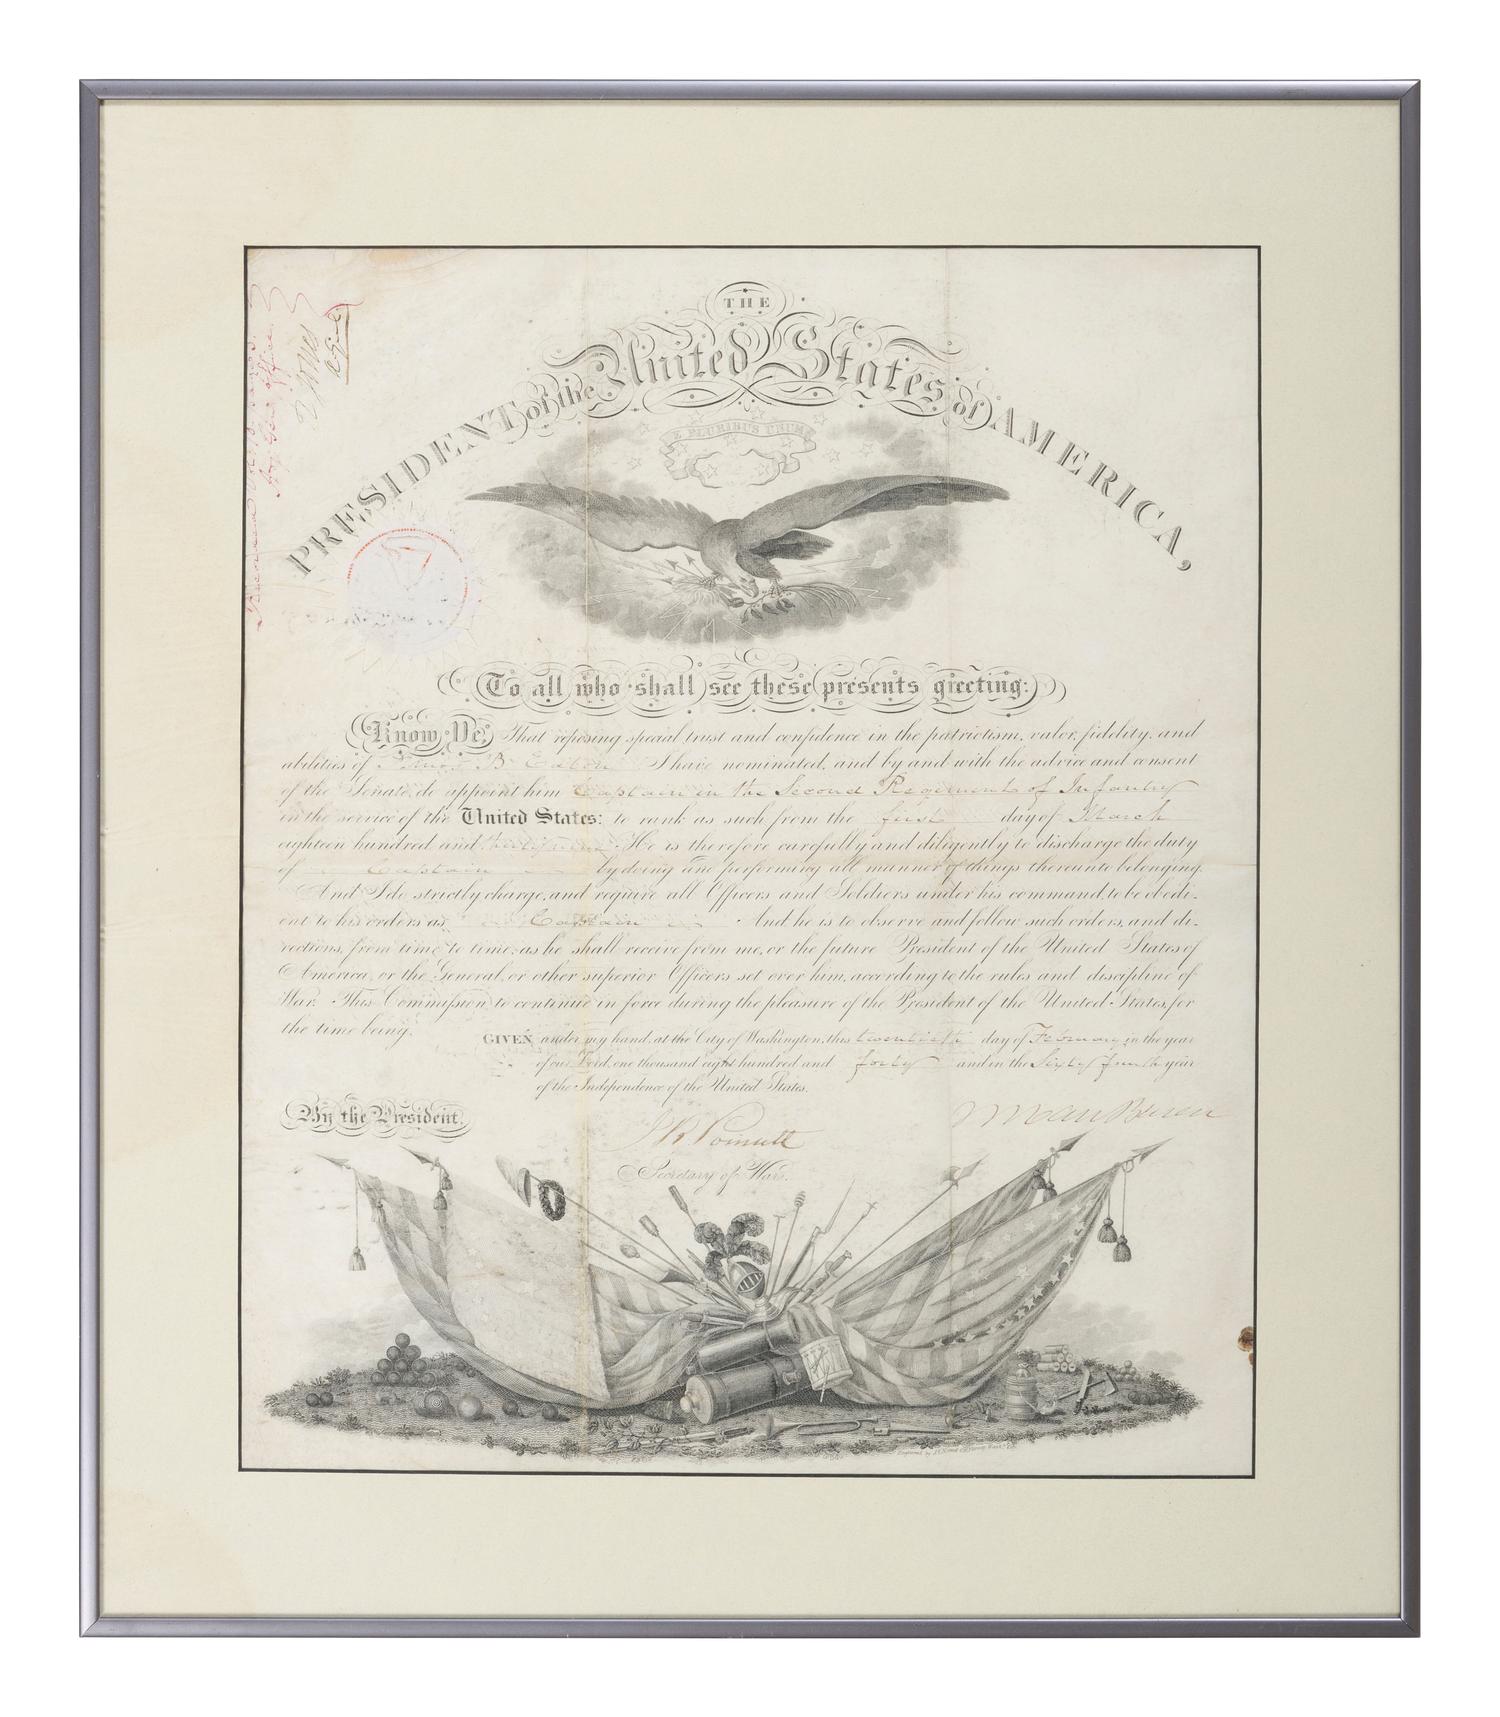 THE
PRESIDENT of the United States of AMERICA,
E PLURIBUS UNUM
To all who shall see these presents greeting:
Know Ye, That reposing special trust and confidence in the patriotism, valor, fidelity, and
abilities of B. Eaton I have nominated, and by and with the advice and consent
of the Senate, do appoint him Captain in the Second Regiment of Infantry
in the service of the United States: to rank as such from the first day of March
eighteen hundred and He is therefore carefully and diligently to discharge the duty
of Captain by doing and performing all manner of things thereunto belonging.
And I do strictly charge, and require all Officers and Soldiers under his command, to be obedi-
ent to his orders as Captain And he is to observe and follow such orders, and di-
rections, from time to time, as he shall receive from me, or the future President of the United States of
America, or the General, or other superior Officers set over him, according to the rules and discipline of
War. This Commission to continue in force during the pleasure of the President of the United States, for
the time being.
GIVEN under my hand, at the City of Washington, this twentieth day of February in the year
of our Lord, one thousand eight hundred and forty and in the Sixty fourth year
of the Independence of the United States.
By the President,
M Van Buren
J R Poinsett
Secretary of War.